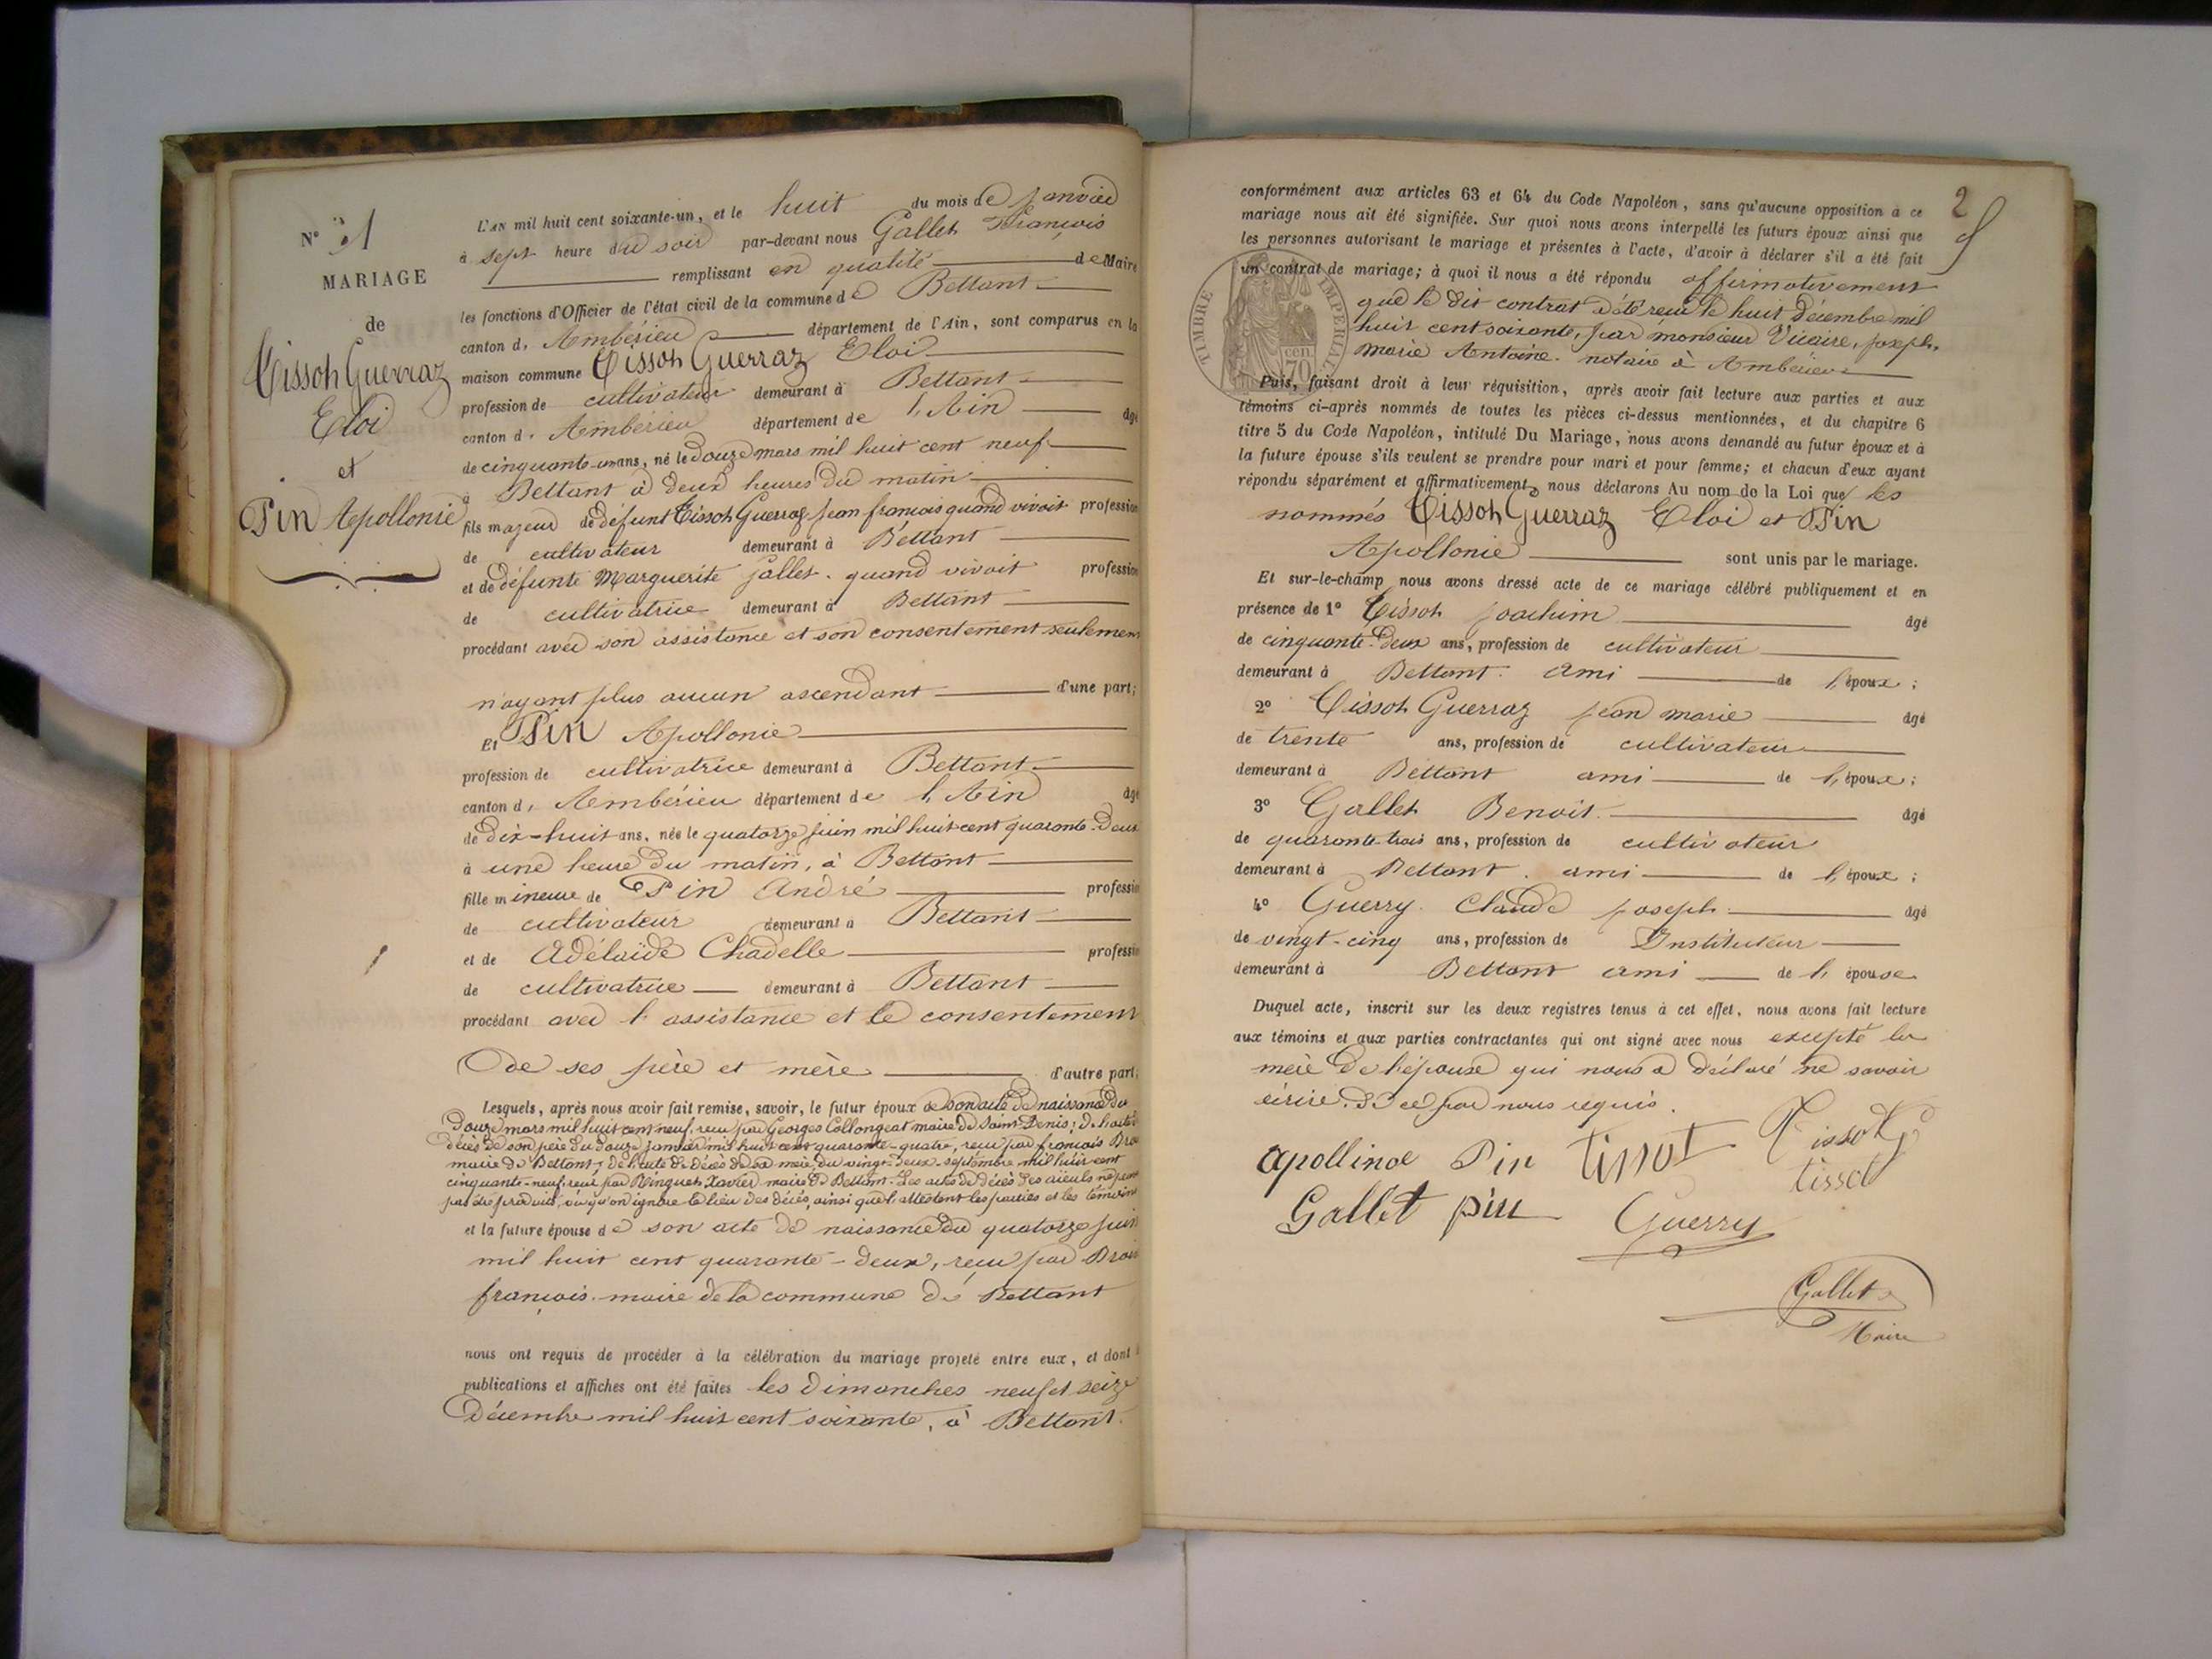 N° 1
MARIAGE
de
Tissot Guerraz
Eloi
et
Pin Apollonie
L'AN mil huit cent soixante-un, et le huit du mois de janvier
à sept heure du soir par-devant nous Gallet François
remplissant en qualité de Maire
les fonctions d'Officier de l'état civil de la commune de Bettant
canton d' Ambérieu département de l'Ain, sont comparus en la
maison commune Tissot Guerraz Eloi
profession de cultivateur demeurant à Bettant
canton d' Ambérieu département de l'Ain âgé
de cinquante-un ans, né le douze mars mil huit cent neuf
à Bettant à deux heures du matin
fils majeur de défunt Tissot Guerraz jean francois quand vivait profession
de cultivateur demeurant à Bettant
et de défunte Marguerite Gallet. quand vivait profession
de cultivatrice demeurant à Bettant
procédant avec son assistance et son consentement seulement
n'ayant plus aucun ascendant d'une part;
Et Pin Apollonie
profession de cultivatrice demeurant à Bettant
canton d' Ambérieu département de l'Ain âgé
de dix-huit ans, née le quatorze juin mil huit cent quarante-deux
à une heure du matin, à Bettant
fille mineure de Pin André profession
de cultivateur demeurant à Bettant
et de Adélaïde Chadelle profession
de cultivatrice demeurant à Bettant
procédant avec l'assistance et le consentement
de ses père et mère d'autre part;
Lesquels, après nous avoir fait remise, savoir, le futur époux de son acte de naissance du
douze mars mil huit cent neuf, reçu par Georges Collongeat maire de Saint-Denis; de l'acte de
décès de son père du douze janvier mil huit cent quarante-quatre, reçu par francois
maire de Bettant; de l'acte de décès de sa mère, du vingt-deux septembre mil huit cent
cinquante-neuf reçu par Ninguet Xavier maire de Bettant. Les actes de décès des aïeuls ne
pas être produits, vu qu'on ignore le lieu des décès, ainsi que l'attestent les parties et les témoins
et la future épouse de son acte de naissance du quatorze juin
mil huit cent quarante-deux, reçu par
françois. maire de la commune de Bettant
nous ont requis de procéder à la célébration du mariage projeté entre eux, et dont
publications et affiches ont été faites les dimanches neuf et seize
décembre mil huit cent soixante, à Bettant.
2
conformément aux articles 63 et 64 du Code Napoléon, sans qu'aucune opposition à ce
mariage nous ait été signifiée. Sur quoi nous avons interpellé les futurs époux ainsi que
les personnes autorisant le mariage et présentes à l'acte, d'avoir à déclarer s'il a été fait
un contrat de mariage; à quoi il nous a été répondu affirmativement
que le dit contrat a été reçu le huit décembre mil
huit cent soixante, par monsieur Vicaire, joseph,
Marie Antoine. notaire à Ambérieu
TIMBRE IMPERIAL
70 cen
Puis, faisant droit à leur réquisition, après avoir fait lecture aux parties et aux
témoins ci-après nommés de toutes les pièces ci-dessus mentionnées, et du chapitre 6
titre 5 du Code Napoléon, intitulé Du Mariage, nous avons demandé au futur époux et à
la future épouse s'ils veulent se prendre pour mari et pour femme; et chacun d'eux ayant
répondu séparément et affirmativement, nous déclarons Au nom de la Loi que les
nommés Tissot Guerraz Eloi et Pin
Apollonie sont unis par le mariage.
Et sur-le-champ nous avons dressé acte de ce mariage célébré publiquement et en
présence de 1° Tissot joachim âgé
de cinquante-deux ans, profession de cultivateur
demeurant à Bettant. ami de l'époux;
2° Tissot Guerraz jean marie âgé
de trente ans, profession de cultivateur
demeurant à Bettant ami de l'époux;
3° Gallet Benoit. âgé
de quarante-trois ans, profession de cultivateur
demeurant à Bettant. ami de l'époux;
4° Guerry Claude joseph âgé
de vingt-cinq ans, profession de Instituteur
demeurant à Bettant ami de l'épouse
Duquel acte, inscrit sur les deux registres tenus à cet effet, nous avons fait lecture
aux témoins et aux parties contractantes qui ont signé avec nous excepté la
mère de l'épouse qui nous a déclaré ne savoir
écrire. de ce par nous requis.
apollinoe Pin tissot Tissot G
tissot
Gallet pin Guerry
Gallet
Maire